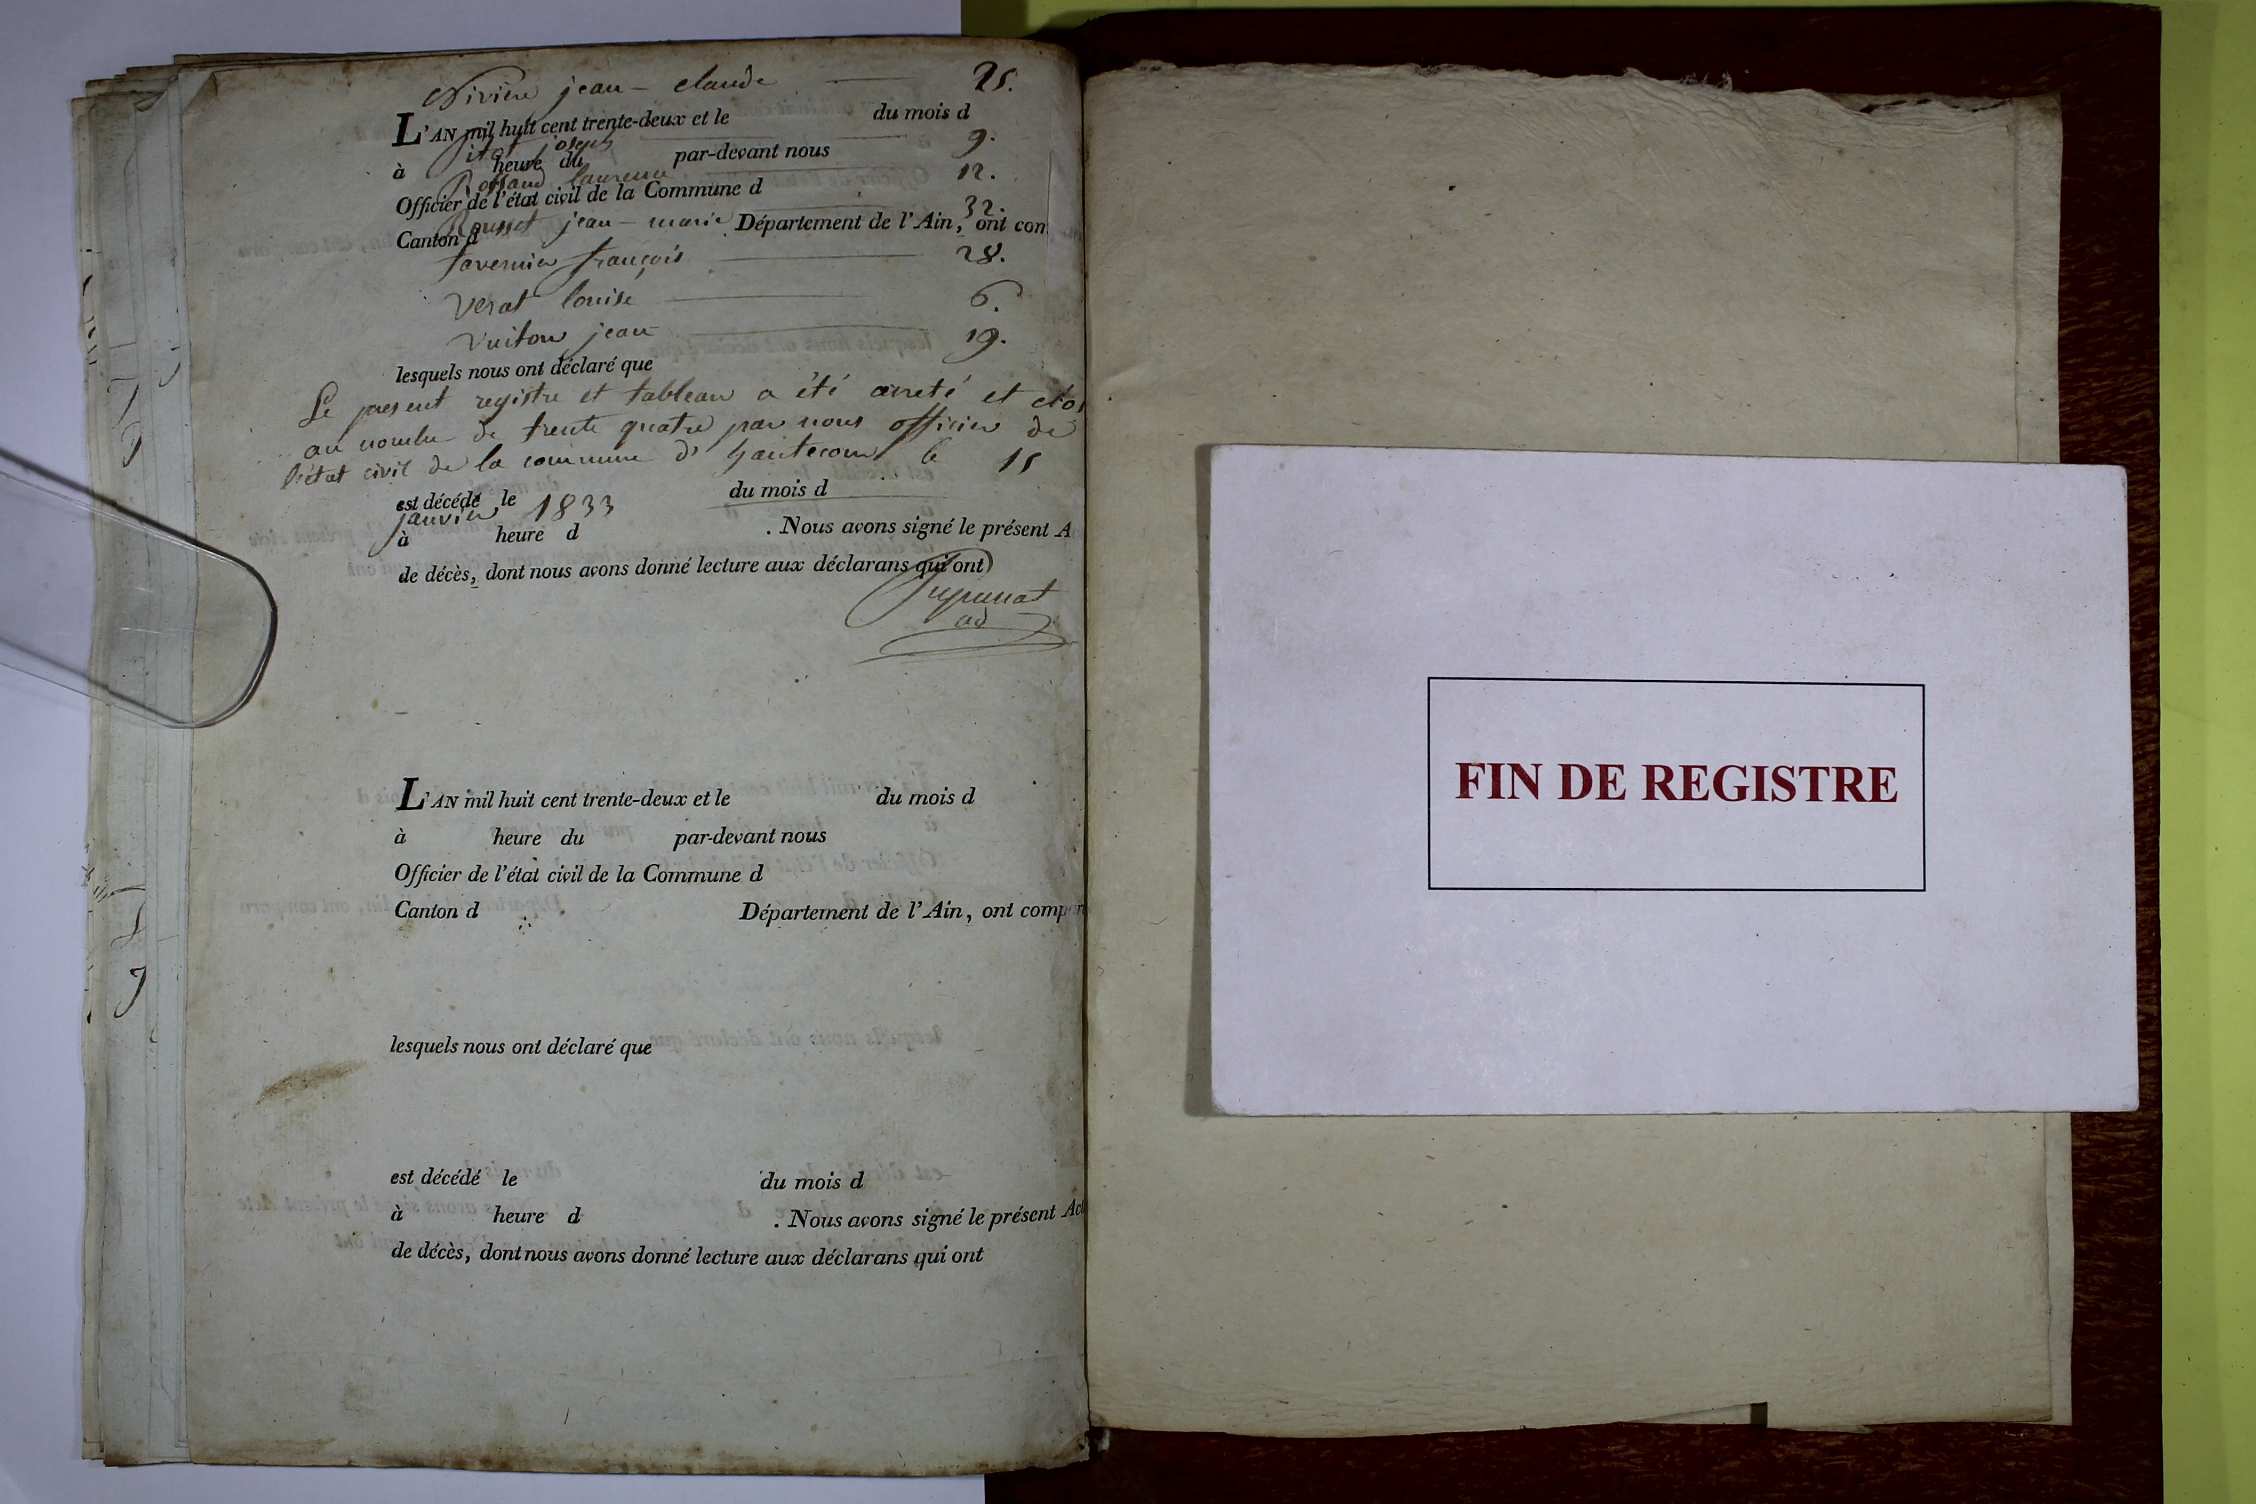 Nivière jean - claude 25.
L'AN mil huit cent trente-deux et le du mois d
Pitot joseph 9.
à heure du par-devant nous
laurence 12.
Officier de l'état civil de la Commune d
Rousset jean - marie 32.
Canton d Département de l'Ain, ont com
tavernier françois 28.
Verat louise 6.
Vuiton jean 19.
lesquels nous ont déclaré que
Le present registre et tableau a été arreté et clos
au nombre de trente quatre par nous officier de
l'état civil de la commune d' hautecour le 15
est décédé le du mois d
janvier 1833
à heure d . Nous avons signé le présent A
de décès, dont nous avons donné lecture aux déclarans qui ont
ad
L'AN mil huit cent trente-deux et le du mois d
à heure du par-devant nous
Officier de l'état civil de la Commune d
Canton d Département de l'Ain, ont comp
lesquels nous ont déclaré que
est décédé le du mois d
à heure d . Nous avons signé le présent Act
de décès, dont nous avons donné lecture aux déclarans qui ont
FIN DE REGISTRE